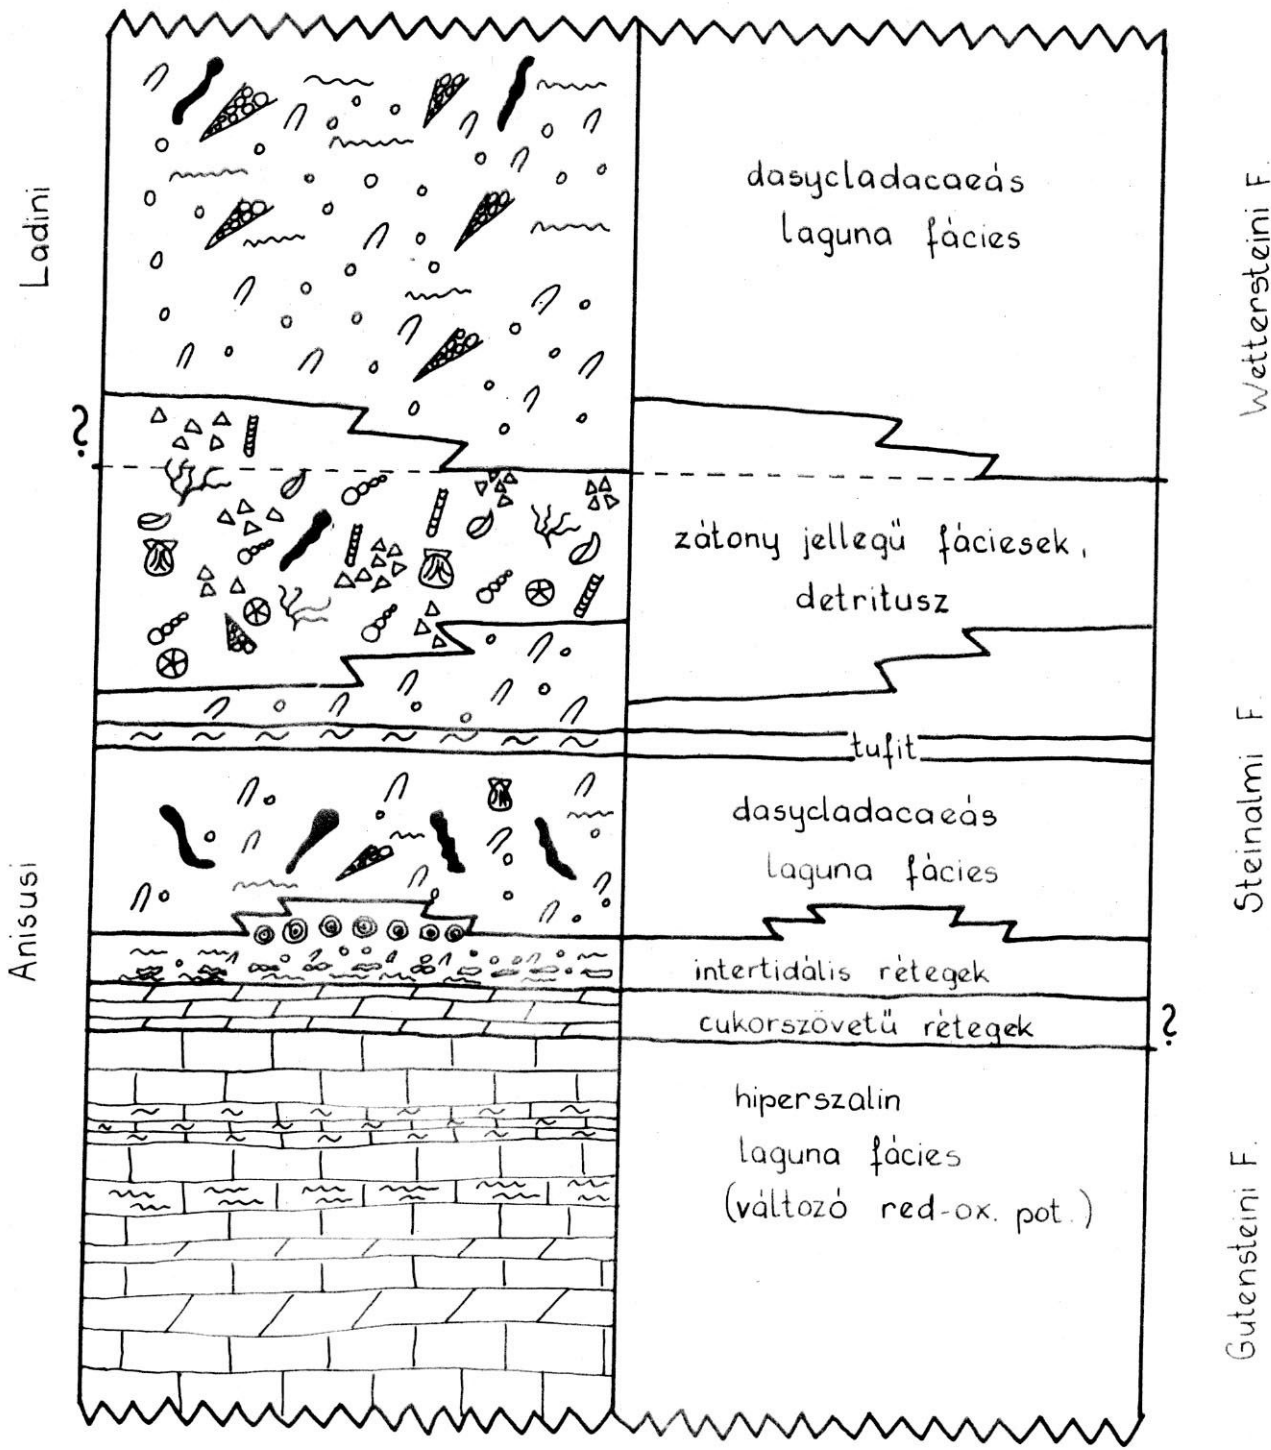 Ladini
?
Anisusi
dasycladacaeás
laguna fácies
zátony jellegű fáciesek,
detritusz
tufit
dasycladacaeás
laguna fácies
intertidális rétegek
cukorszövetű rétegek
?
hiperszalin
laguna fácies
(változó red-ox. pot.)
Wettersteini F.
Steinalmi F
Gutensteini F.